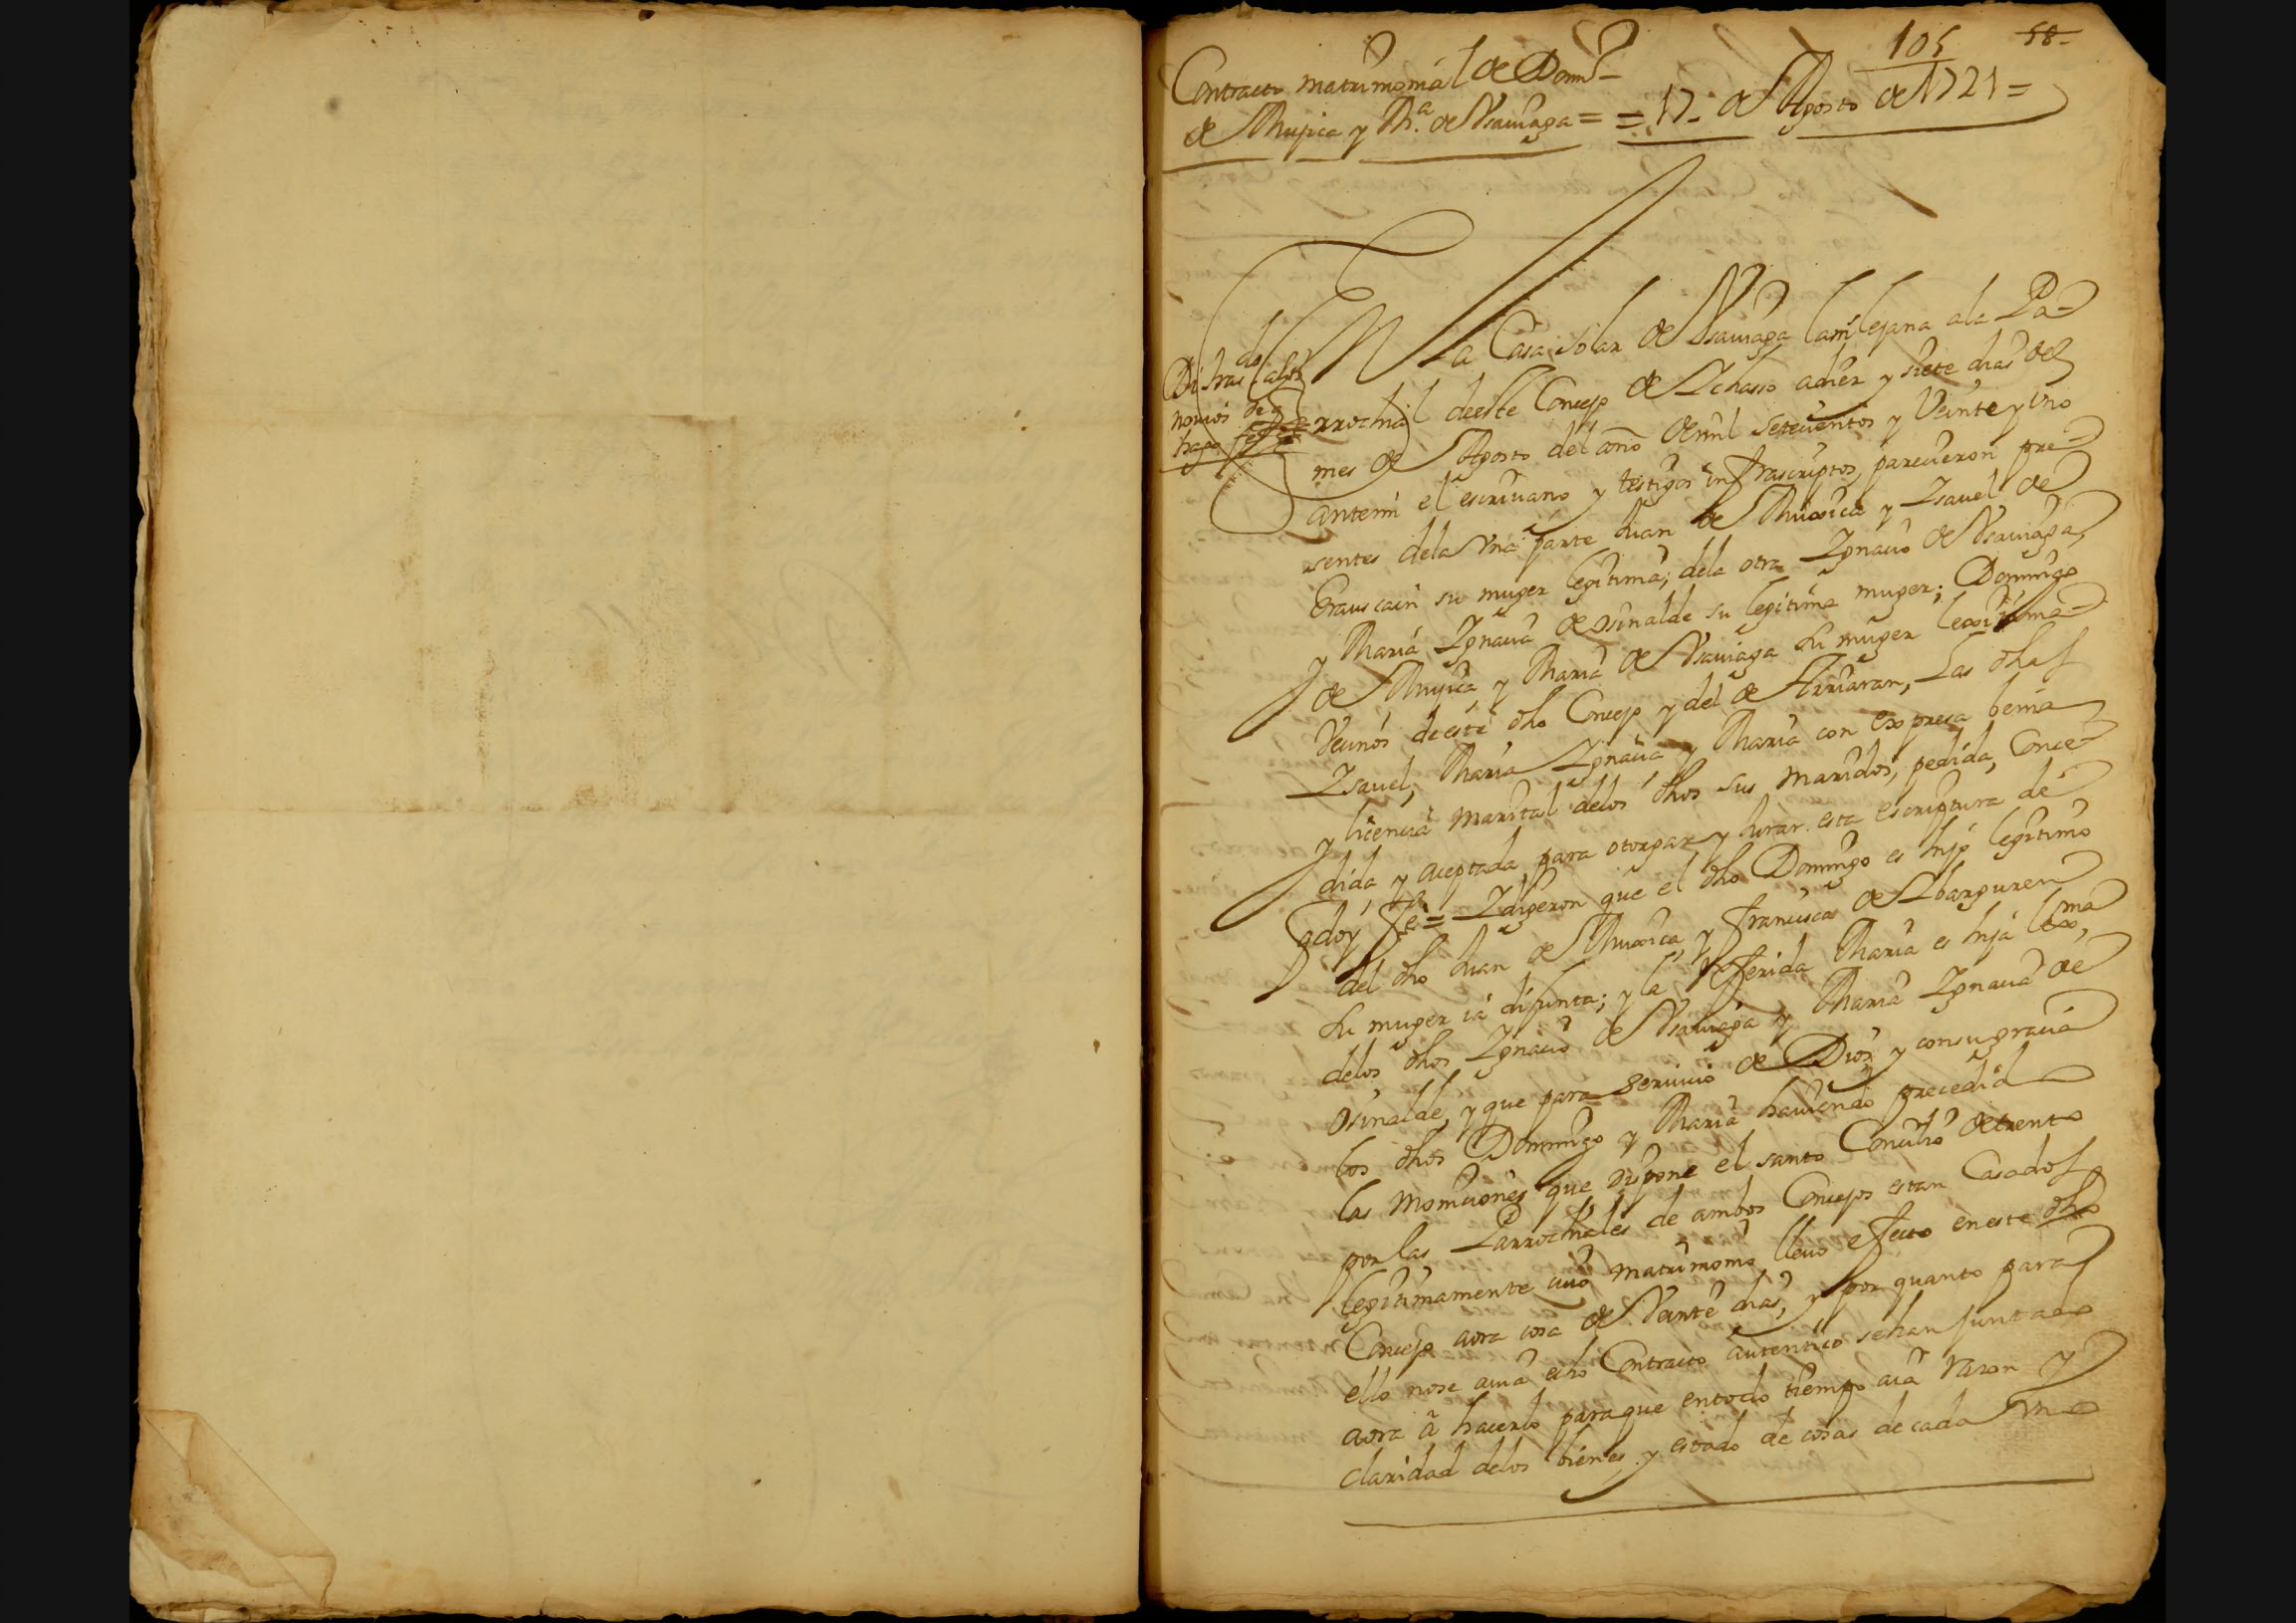 105 58-
Contracto matrimonial de Domº
de Mujica y Mª. de Vsauiaga = = 17 - de Agosto de 1721 =
Di tras.do a los
nouios de q
hago fee
En La Casa solar de Vsauiaga l'ami lejana ala Pa-
rrochial deeste Concejo de Ichasso adiez y siete dias del
mes de Agosto del año demil setecientos y Veinte y vno
antemi el escriuano y testigos infrascriptos, parecieron pre-
sentes dela Vna parte Juan de Muxica y Isauel de
Erauscain su muger legitima; dela otra Ignacio de Vsauiaga,
y Maria Ignacia de osinalde su legitima muger; Domingo
de Mujica, y Maria de Vsauiaga su muger lexitima
Vecinos deeste dho Concejo y del de Arriaran, Las dhas
Isauel, Maria Ignacia y Maria con expresa benia
y licencia marital delos dhos sus maridos, pedida, Conce-
dida, y aceptada para otorgar y Jurar esta escriptura de
q doy fe = I digeron que el dho Domingo es hijo legitimo
del dho Juan de Muxica, y francisca de Ibarguren
su muger ia difunta; y la referida Maria es hija lexma,
delos dhos Ignacio de Vsauiaga y Maria Ignacia de
Osinalde, y que para seruicio de Dios y consugracia
los dhos Domingo y Maria hauiendo precedido
las moniciones que dispone el santo Concilio detrento
por las Parrochiales de ambos Concejos estan Casados
legitimamente cuio matrimonio lleuo efecto eneste dho
Concejo aora cosa de Veinte dias, y por quanto para
ello nose auia echo Contracto autentico sehan Juntado
aora â hacerlo paraque entodo tiempo aia rason y
claridad delos bienes y estado de cosas de cada Vno